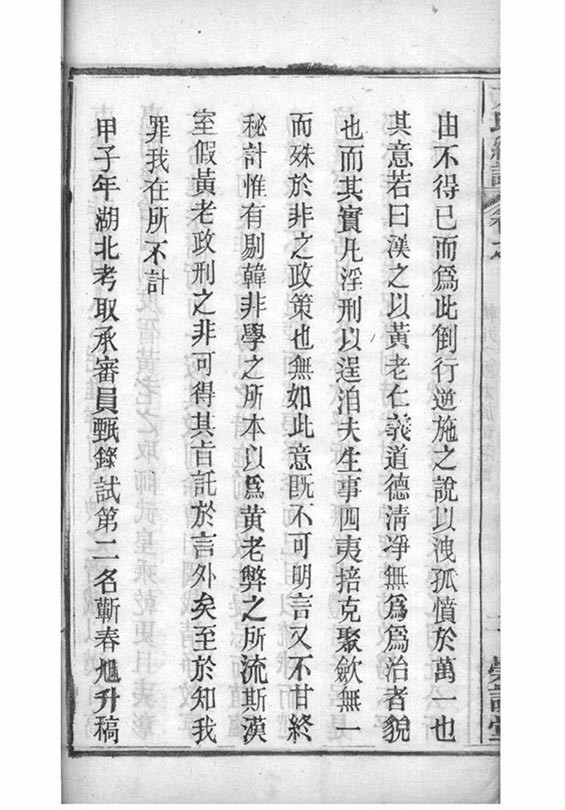 由不得已而爲此倒行逆施之說以洩孤憤於萬一也
其意若曰漢之以黃老仁義道德清凈無爲爲治者貌
也而其實凡淫刑以逞洎夫生事四夷掊克聚歛無一
而殊於非之政策也無如此意旣不可明言又不甘終
秘計惟有剔韓非學之所本以爲黃老弊之所流斯漢
室假黃老政刑之非可得其旨託於言外矣至於知我
罪我在所不計
甲子年湖北考取承審員甄錄試第二名蘄春旭升稿